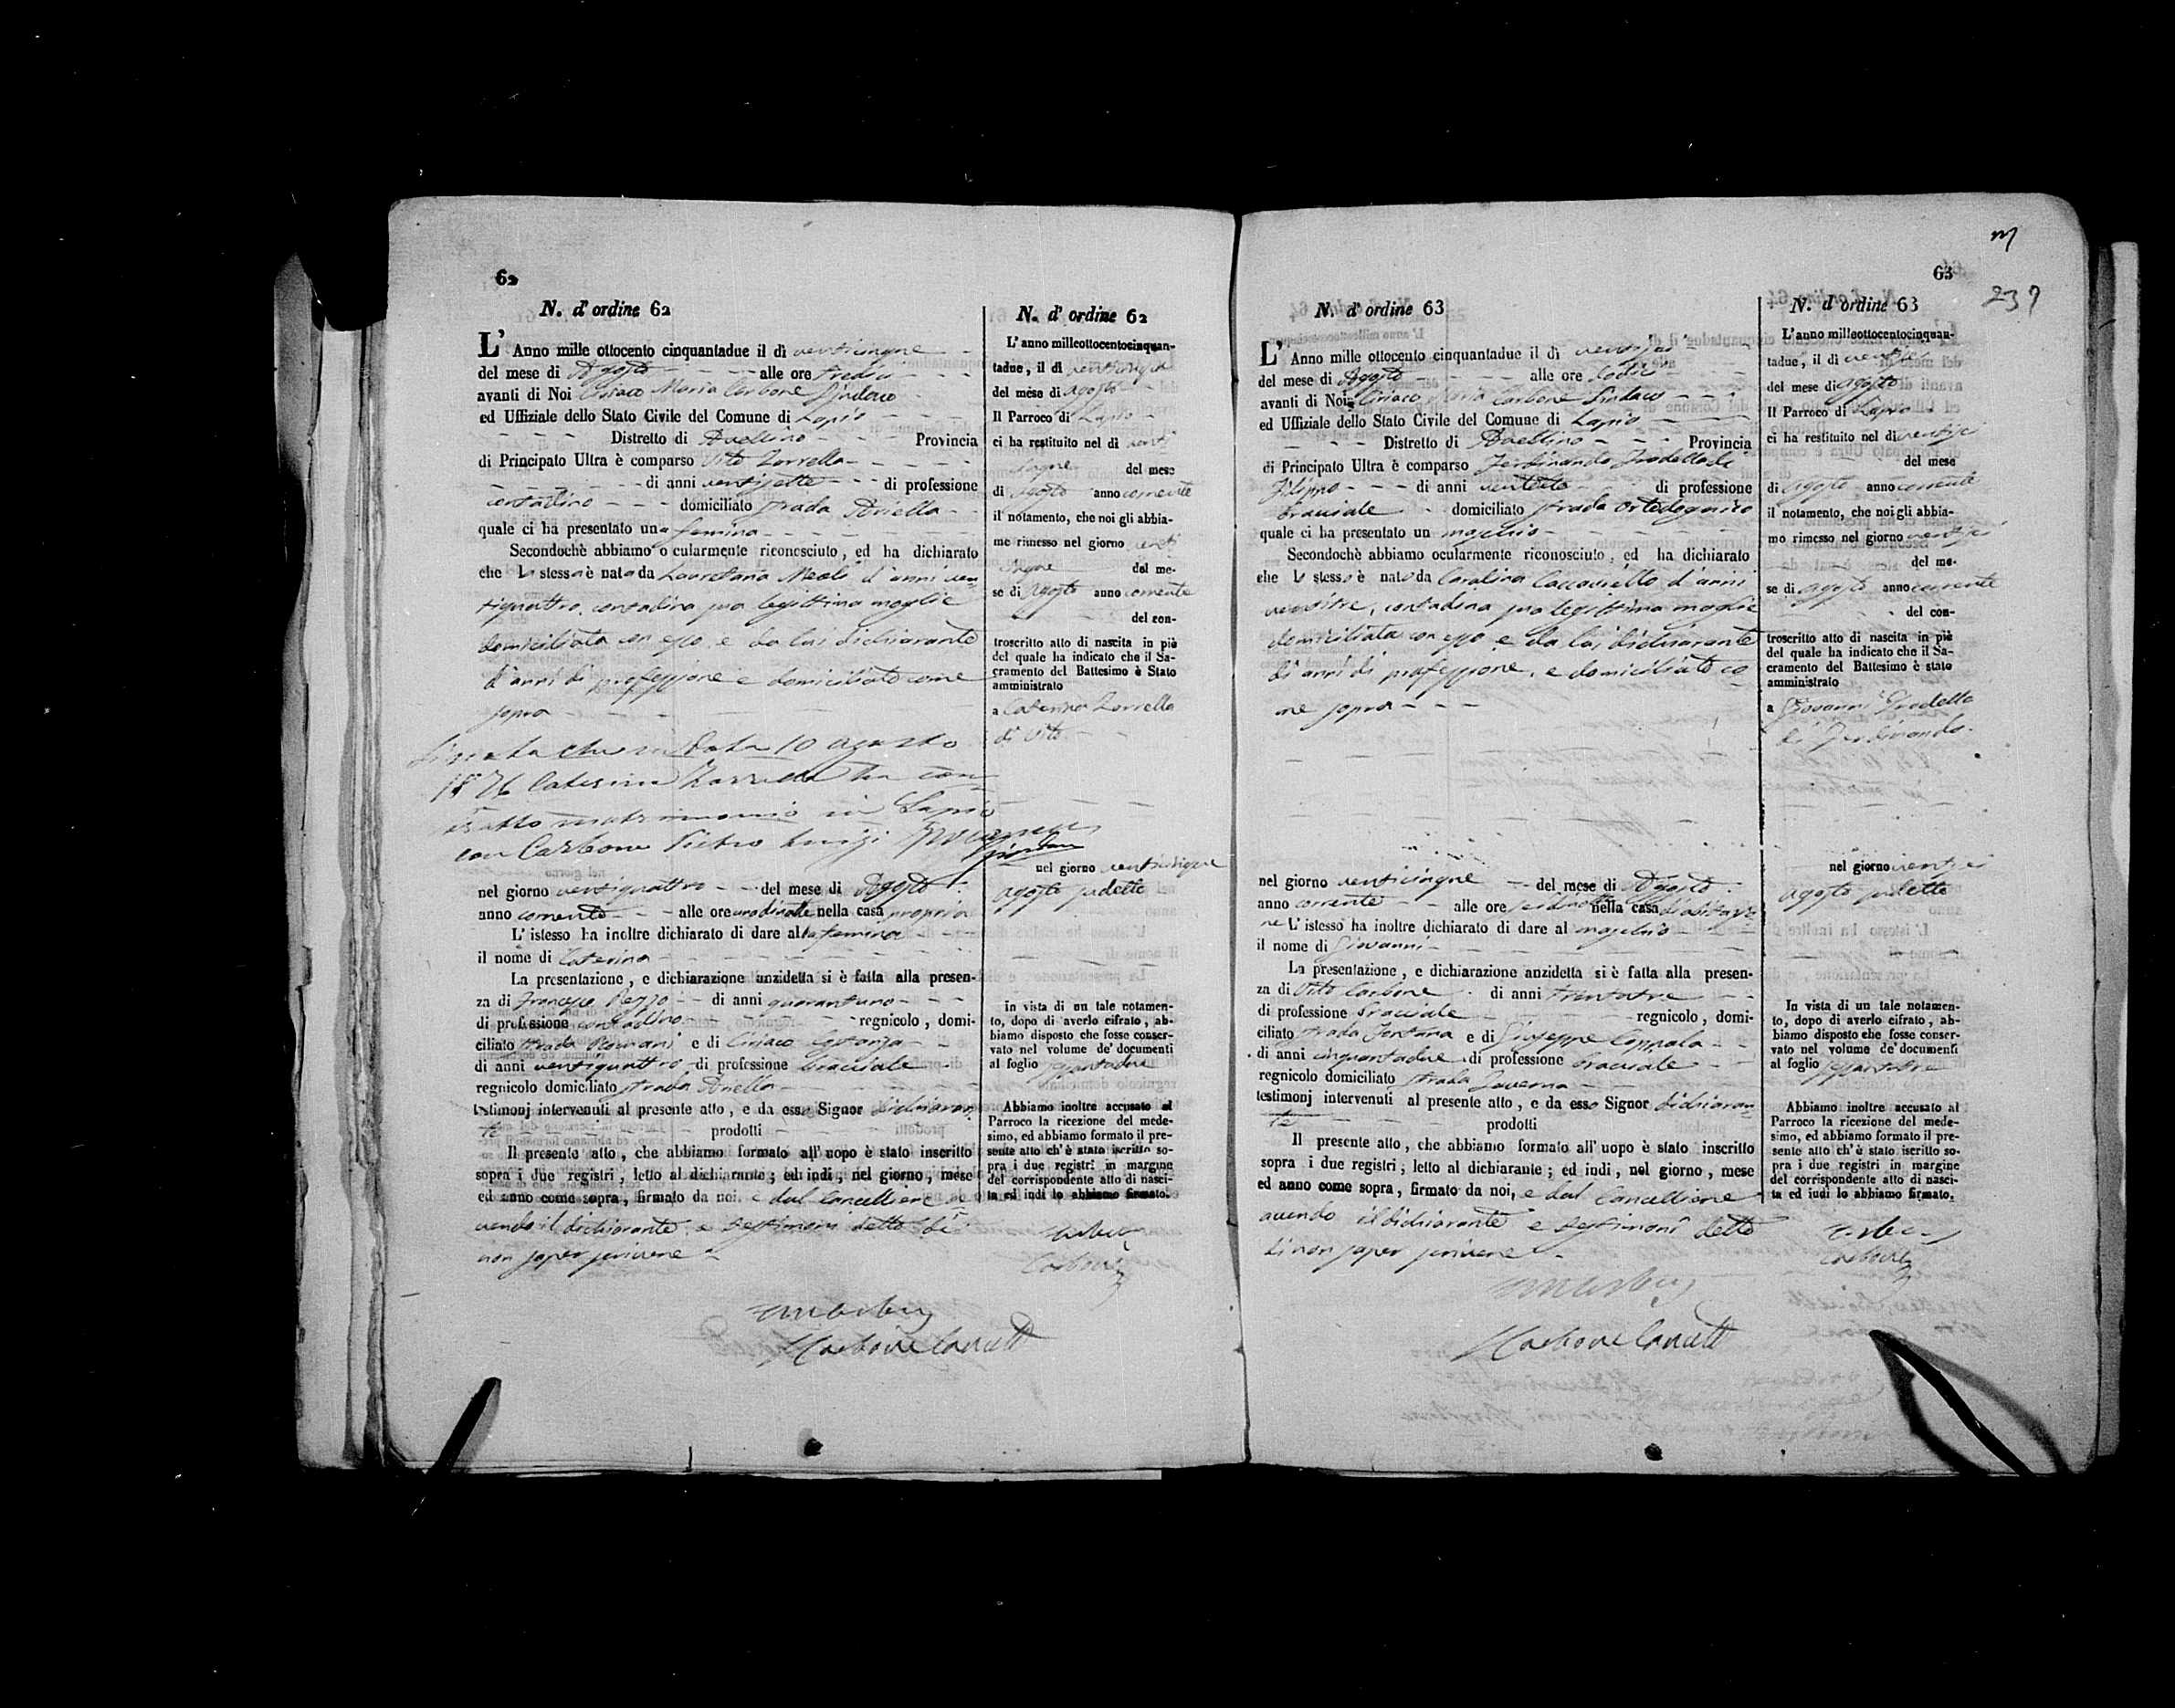 62
N. d' ordine 62
L' Anno mille ottocento cinquantadue il dì venticinque
del mese di Agosto alle ore tredici
avanti di Noi Ciriaco Maria Carbone Sindaco
ed Uffiziale dello Stato Civile del Comune di Lapio
Distretto di Avellino Provincia
di Principato Ultra è comparso Vito Zarrella
di anni ventisette di professione
contadino domiciliato strada Aniella
quale ci ha presentato una femina
Secondochè abbiamo ocularmente riconosciuto, ed ha dichiarato
che la stessa è nata da Lauretana Meoli d'anni ven
tiquattro, contadina sua legittima moglie
domiciliata con esso, e da lui dichiarante
d'anni di professione e domiciliato come
sopra
che in data 10 agosto
1876 Caterina Zarrella ha con
tratto matrimonio in Lapio
con Carbone Pietro Luigi
nel giorno ventiquattro del mese di Agosto
anno corrente alle ore una di notte nella casa propria
L' istesso ha inoltre dichiarato di dare alla femina
il nome di Caterina
La presentazione, e dichiarazione anzidetta si è fatta alla presen-
za di Francesco Rezzo di anni quarantuno
di professione contadino regnicolo, domi-
ciliato strada Romani e di Ciriaco Costanza
di anni ventiquattro di professione bracciale
regnicolo domiciliato strada Aniella
testimonj intervenuti al presente atto, e da esso Signor dichiaran
te prodotti
Il presente atto, che abbiamo formato all' uopo è stato inscritto
sopra i due registri, letto al dichiarante; ed indi, nel giorno, mese
ed anno come sopra, firmato da noi, e dal Cancelliere a
vendo il dichiarante e testimoni detto di
non saper scrivere
Carbone Cancell
N. d' ordine 62
L' anno milleottocentocinquan-
tadue, il dì venticinque
del mese di Agosto
Il Parroco di Lapio
ci ha restituito nel dì venti
cinque del mese
di agosto anno corrente
il notamento, che noi gli abbia-
mo rimesso nel giorno venti
cinque del me-
se di Agosto anno corrente
del con-
troscritto atto di nascita in piè
del quale ha indicato che il Sa-
cramento del Battesimo è Stato
amministrato
a Caterina Zarrella
di Vito
nel giorno venticinque
agosto sudetto
In vista di un tale notamen-
to, dopo di averlo cifrato, ab-
biamo disposto che fosse conser-
vato nel volume de' documenti
al foglio sessantadue
Abbiamo inoltre accusato al
Parroco la ricezione del mede-
simo, ed abbiamo formato il pre-
sente atto ch' è stato iscritto so-
pra i due registri in margine
del corrispondente atto di nasci-
ta ed indi lo abbiamo firmato.
Carbone
63
237
N. d' ordine 63
L' Anno mille ottocento cinquantadue il dì ventisei
del mese di Agosto alle ore dodici
avanti di Noi Ciriaco Maria Carbone Sindaco
ed Uffiziale dello Stato Civile del Comune di Lapio
Distretto di Avellino Provincia
di Principato Ultra è comparso Ferdinando Iradella di
Filippo di anni ventotto di professione
bracciale domiciliato strada
quale ci ha presentato un maschio
Secondochè abbiamo ocularmente riconosciuto, ed ha dichiarato
che lo stesso è nato da Carolina Caccaviello d'anni
ventitre, contadina sua legittima moglie
domiciliata con esso e da lui dichiarante
di anni di professione, e domiciliato co
me sopra
nel giorno venticinque del mese di Agosto
anno corrente alle ore sei di notte nella casa di abitazio
ne L' istesso ha inoltre dichiarato di dare al maschio
il nome di Giovanni
La presentazione, e dichiarazione anzidetta si è fatta alla presen-
za di Vito Carbone di anni trentatre
di professione bracciale regnicolo, domi-
ciliato strada Fontana e di Giuseppe Coppola
di anni cinquantadue di professione bracciale
regnicolo domiciliato strada Taverna
testimonj intervenuti al presente atto, e da esso Signor dichiaran
te prodotti
Il presente atto, che abbiamo formato all' uopo è stato inscritto
sopra i due registri, letto al dichiarante; ed indi, nel giorno, mese
ed anno come sopra, firmato da noi, e dal Cancelliere
avendo il dichiarante e testimoni detto
di non saper scrivere
Carbone Cancell
N. d' ordine 63
L' anno milleottocentocinquan-
tadue, il dì ventisei
del mese di agosto
Il Parroco di Lapio
ci ha restituito nel dì ventisei
del mese
di agosto anno corrente
il notamento, che noi gli abbia-
mo rimesso nel giorno ventisei
del me-
se di agosto anno corrente
del con-
troscritto atto di nascita in piè
del quale ha indicato che il Sa-
cramento del Battesimo è stato
amministrato
a Giovanni Iradella
di Ferdinando
nel giorno ventisei
agosto sudetto
In vista di un tale notamen-
to, dopo di averlo cifrato, ab-
biamo disposto che fosse conser-
vato nel volume de' documenti
al foglio sessantatre
Abbiamo inoltre accusato al
Parroco la ricezione del mede-
simo, ed abbiamo formato il pre-
sente atto ch' è stato iscritto so-
pra i due registri in margine
del corrispondente atto di nasci-
ta ed indi lo abbiamo firmato.
Carbone